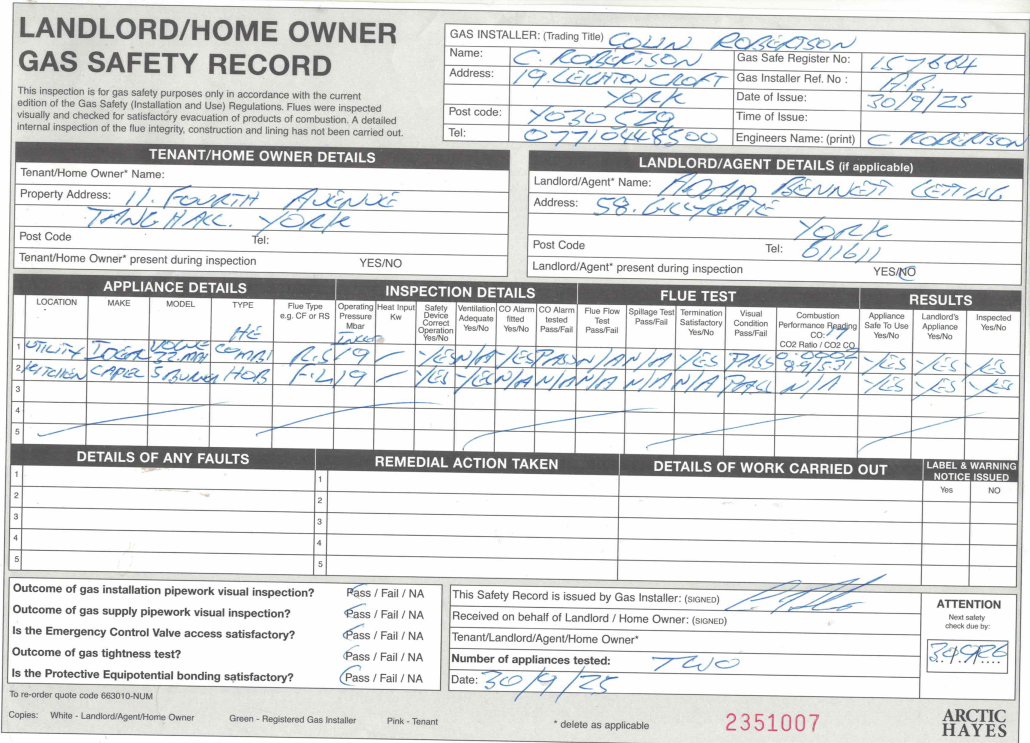 LANDLORD/HOME OWNER
GAS SAFETY RECORD
This inspection is for gas safety purposes only in accordance with the current
edition of the Gas Safety (Installation and Use) Regulations. Flues were inspected
visually and checked for satisfactory evacuation of products of combustion. A detailed
internal inspection of the flue integrity, construction and lining has not been carried out.
GAS INSTALLER: (Trading Title) COLIN ROBERTSON
Name: C. ROBERTSON
Gas Safe Register No: 157664
Address: 19. LEIGHTON CROFT
Gas Installer Ref. No :
YORK
Date of Issue: 30/9/25
Post code: YO30
Time of Issue:
Tel: 07710448500
Engineers Name: (print) C. ROBERTSON
TENANT/HOME OWNER DETAILS
Tenant/Home Owner* Name:
Property Address: 11. FOURTH AVENUE
TANG HALL. YORK
Post Code Tel:
Tenant/Home Owner* present during inspection YES/NO
LANDLORD/AGENT DETAILS (if applicable)
Landlord/Agent* Name: ADAM BENNETT LETTING
Address: 58. GILLYGATE
YORK
Post Code Tel: 611611
Landlord/Agent* present during inspection YES/NO
APPLIANCE DETAILS INSPECTION DETAILS FLUE TEST RESULTS
LOCATION MAKE MODEL TYPE Flue Type e.g. CF or RS Operating Pressure Mbar Heat Input Kw Safety Device Correct Operation Yes/No Ventilation Adequate Yes/No CO Alarm fitted Yes/No CO Alarm tested Pass/Fail Flue Flow Test Pass/Fail Spillage Test Pass/Fail Termination Satisfactory Yes/No Visual Condition Pass/Fail Combustion Performance Reading CO: CO2 Ratio / CO2 CO Appliance Safe To Use Yes/No Landlord's Appliance Yes/No Inspected Yes/No
1 UTILITY IDEAL HE COMBI R.S 19 - YES N/A YES PASS N/A N/A YES PASS 0.0002 YES YES YES
2 KITCHEN 5 BURNER HOB F.L 19 - YES YES N/A N/A N/A N/A N/A PASS N/A YES YES YES
3
4
5
DETAILS OF ANY FAULTS REMEDIAL ACTION TAKEN DETAILS OF WORK CARRIED OUT LABEL & WARNING NOTICE ISSUED
Yes NO
1 1
2 2
3 3
4 4
5 5
Outcome of gas installation pipework visual inspection? Pass / Fail / NA
Outcome of gas supply pipework visual inspection? Pass / Fail / NA
Is the Emergency Control Valve access satisfactory? Pass / Fail / NA
Outcome of gas tightness test? Pass / Fail / NA
Is the Protective Equipotential bonding satisfactory? Pass / Fail / NA
This Safety Record is issued by Gas Installer: (SIGNED)
Received on behalf of Landlord / Home Owner: (SIGNED)
Tenant/Landlord/Agent/Home Owner*
Number of appliances tested: TWO
Date: 30/9/25
ATTENTION
Next safety
check due by:
To re-order quote code 663010-NUM
Copies: White - Landlord/Agent/Home Owner Green - Registered Gas Installer Pink - Tenant
* delete as applicable
2351007
ARCTIC
HAYES